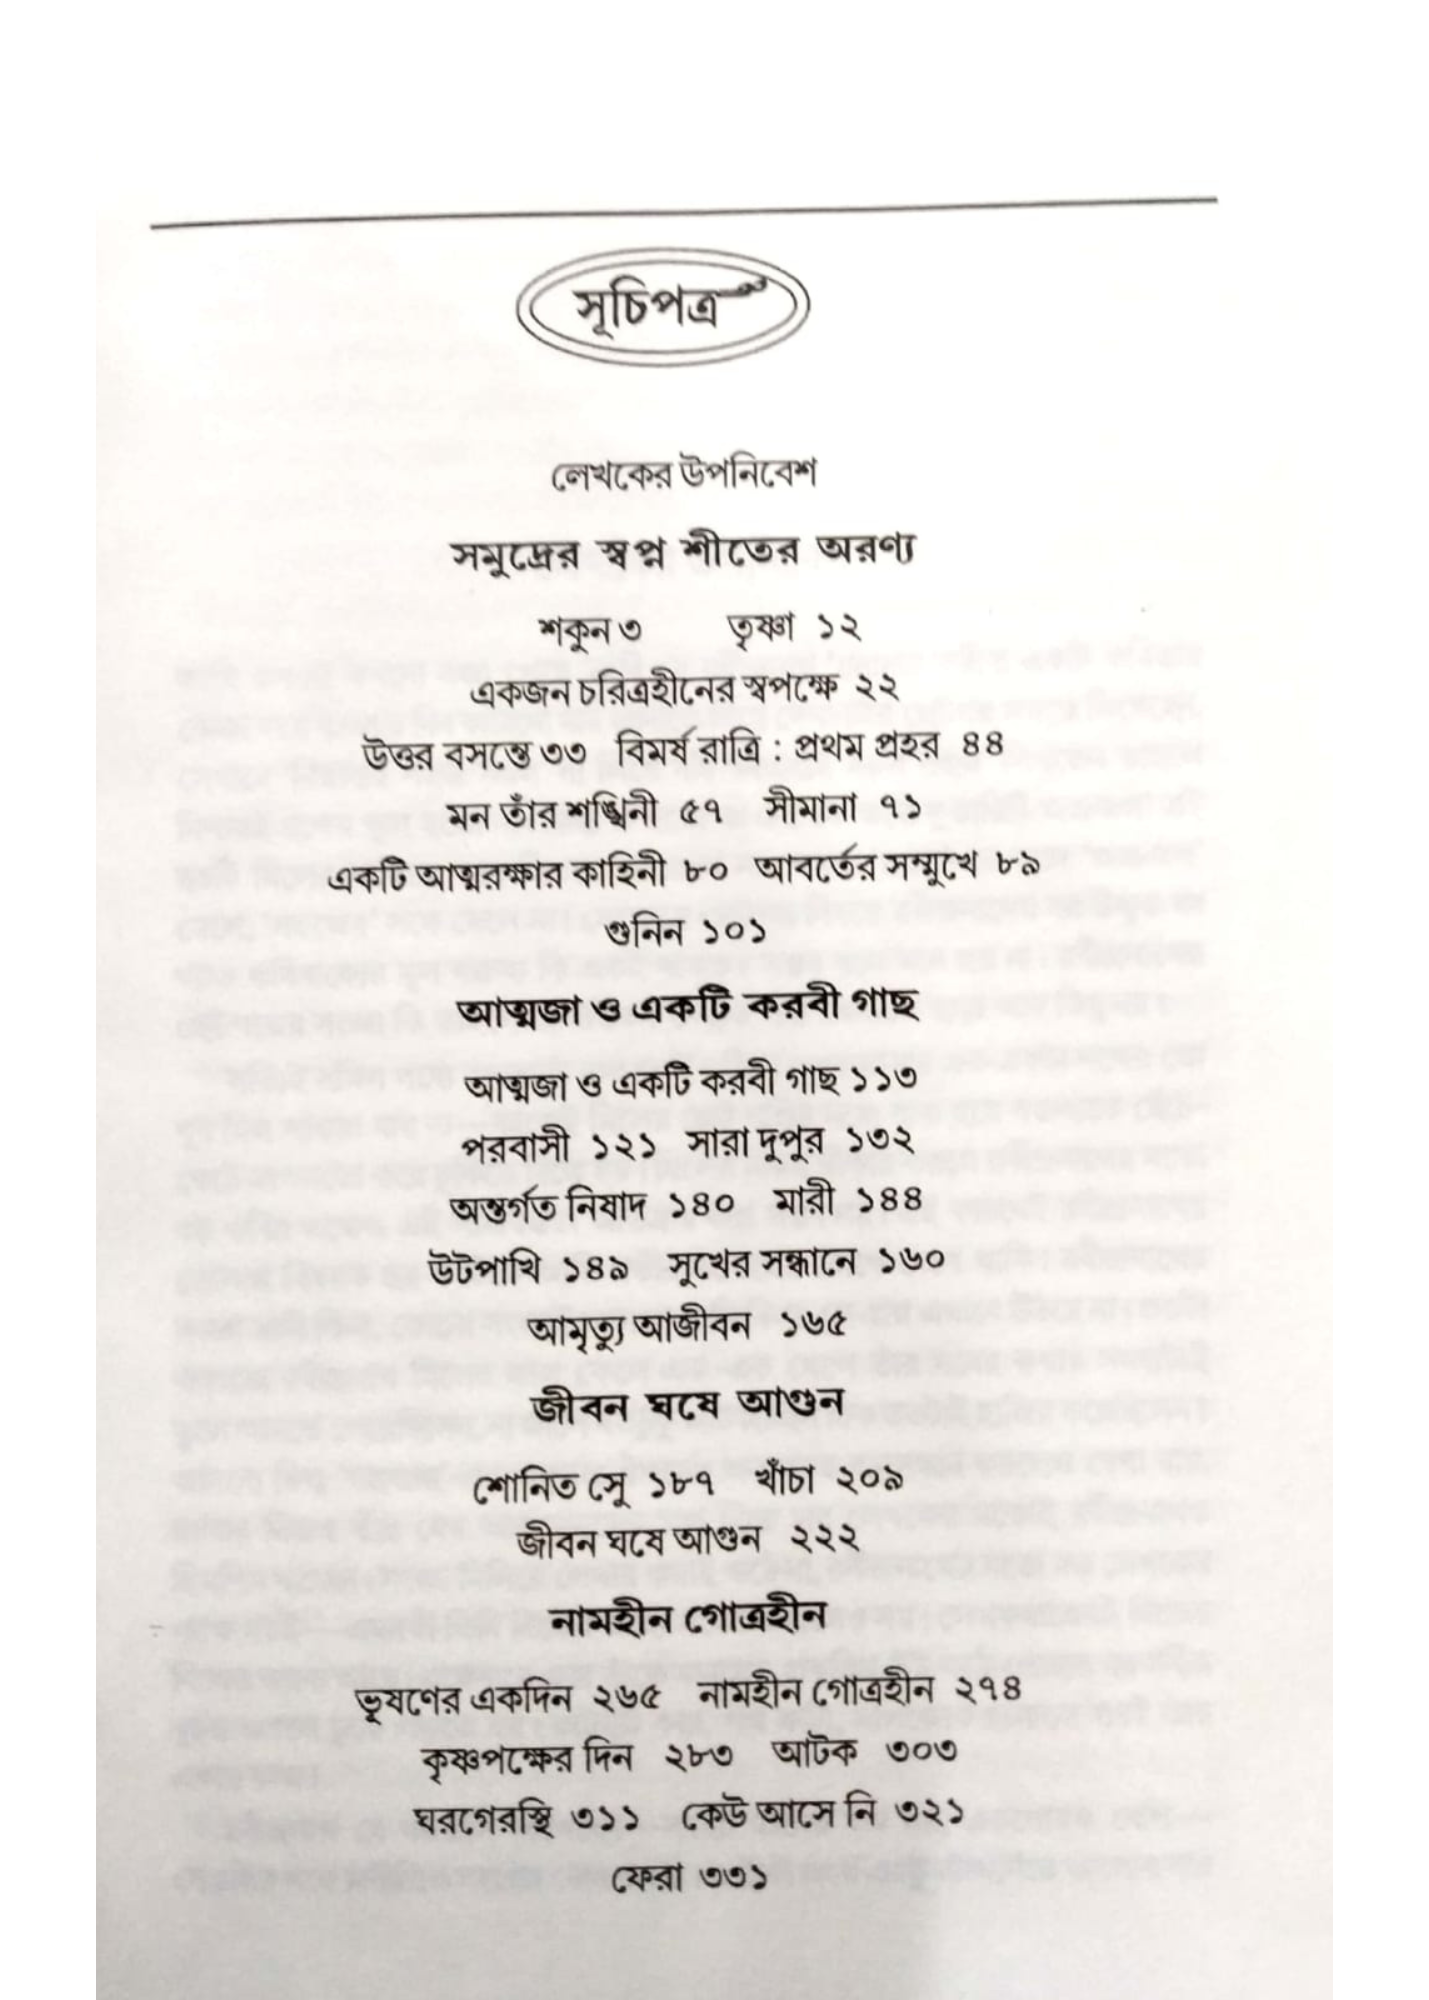 সূচিপত্র
লেখকের উপনিবেশ
সমুদ্রের স্বপ্ন শীতের অরণ্য
শকুন ৩ তৃষ্ণা ১২
একজন চরিত্রহীনের স্বপক্ষে ২২
উত্তর বসন্তে ৩৩ বিমর্ষ রাত্রি : প্রথম প্রহর ৪৪
মন তাঁর শঙ্খিনী ৫৭ সীমানা ৭১
একটি আত্মরক্ষার কাহিনী ৮০ আবর্তের সম্মুখে ৮৯
গুনিন ১০১
আত্মজা ও একটি করবী গাছ
আত্মজা ও একটি করবী গাছ ১১৩
পরবাসী ১২১ সারা দুপুর ১৩২
অন্তর্গত নিষাদ ১৪০ মারী ১৪৪
উটপাখি ১৪৯ সুখের সন্ধানে ১৬০
আমৃত্যু আজীবন ১৬৫
জীবন ঘষে আগুন
শোনিত সেু ১৮৭ খাঁচা ২০৯
জীবন ঘষে আগুন ২২২
নামহীন গোত্রহীন
ভূষণের একদিন ২৬৫ নামহীন গোত্রহীন ২৭৪
কৃষ্ণপক্ষের দিন ২৮৩ আটক ৩০৩
ঘরগেরস্থি ৩১১ কেউ আসে নি ৩২১
ফেরা ৩৩১